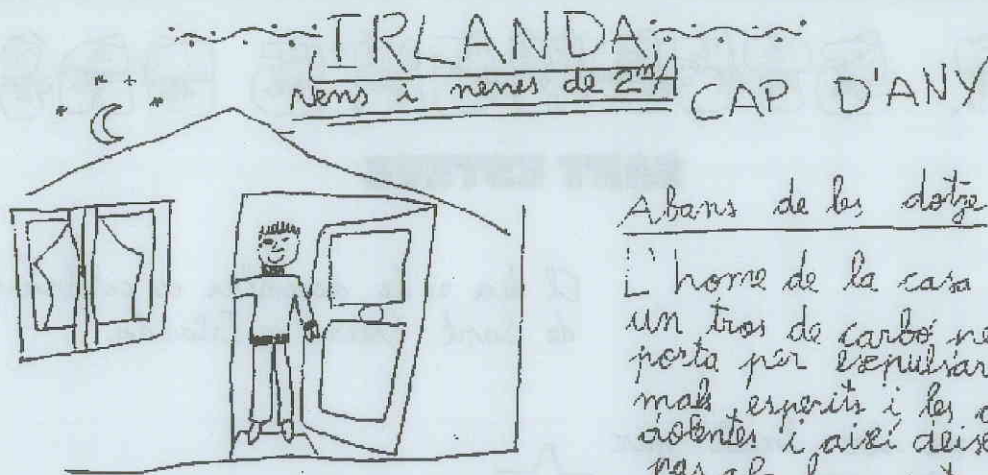 IRLANDA
nens i nenes de 2nA
CAP D'ANY
Abans de les dotze
L'home de la casa
un tros de carbó ne
porta per expulsar
mals esperits i les
dolentes i aixi deixe